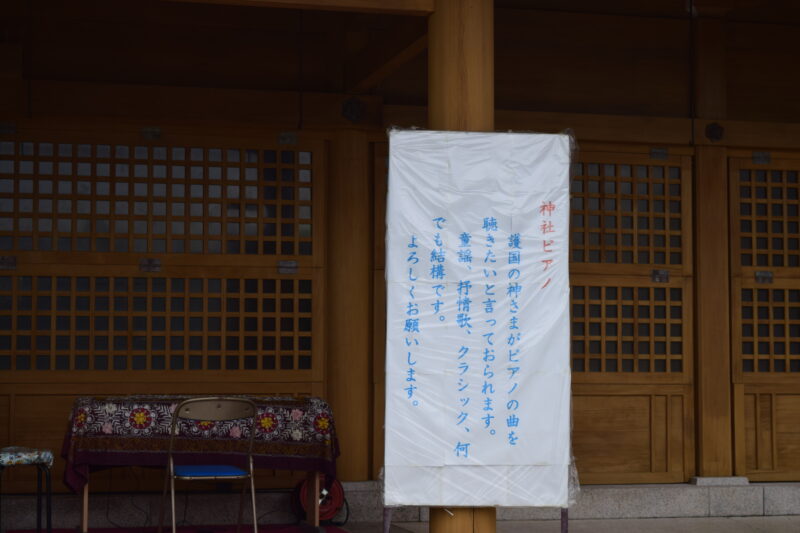 神社ピアノ
護国の神さまがピアノの曲を
聴きたいと言っておられます。
童謡、抒情歌、クラシック、何
でも結構です。
よろしくお願いします。